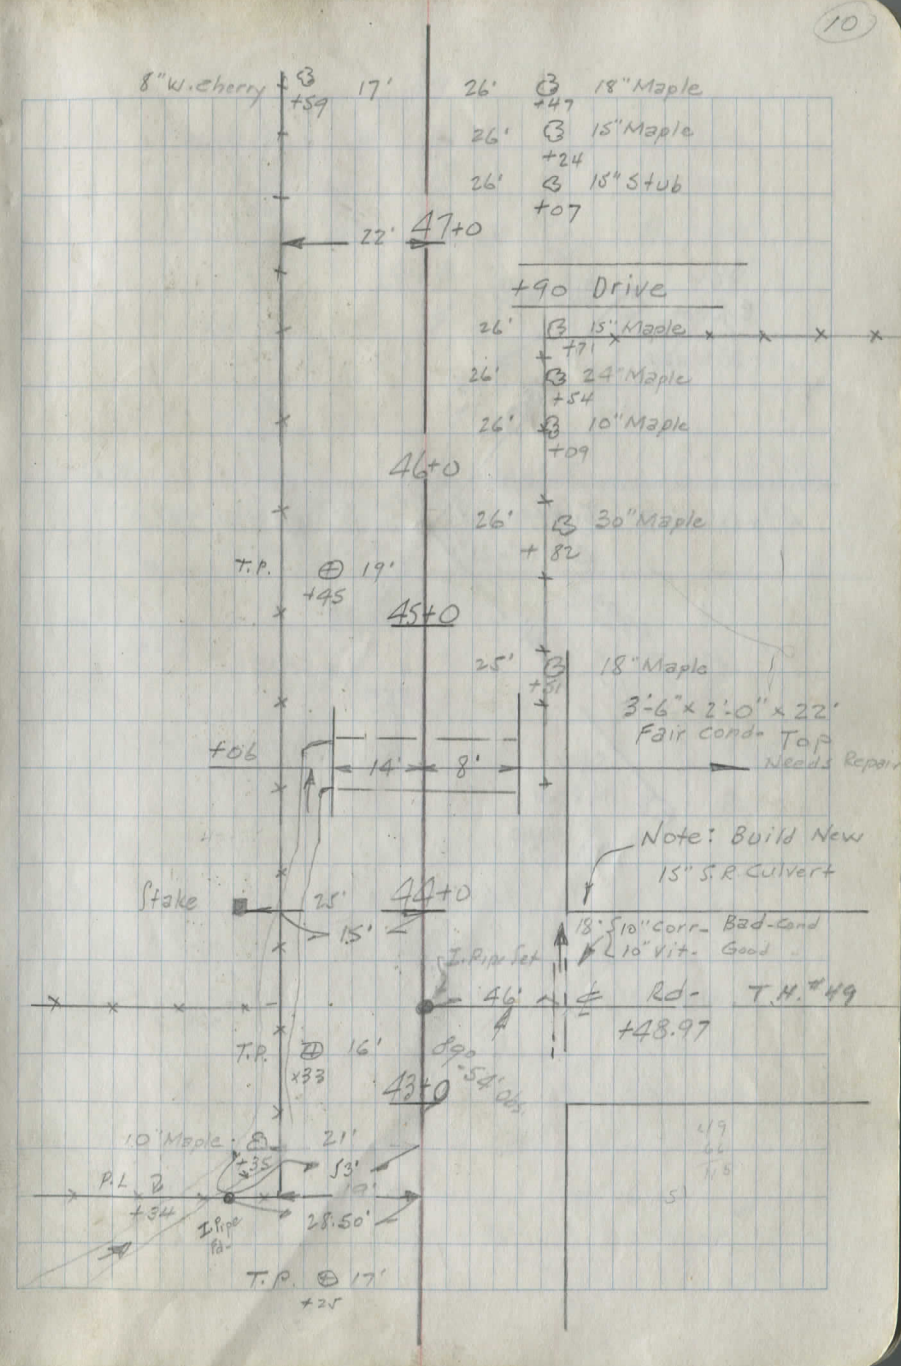 10
8" W. Cherry +59 17' 26' +47 18" Maple
26' +24 15" Maple
26' +07 15" Stub
22' 47+0
+90 Drive
26' +71 15" Maple
26' +54 24" Maple
26' +09 10" Maple
46+0
26' +82 30" Maple
T.P. +45 19'
45+0
25' 18" Maple
3'-6" x 2'-0" x 22'
Fair Cond- Top
Needs Repair
+06 14' 8'
Note: Build New
15" S.R. Culvert
Stake 25' 44+0
15'
18' 10" Corr- Bad-cond
10" Vit- Good
I. Pipe Set
46' ⅊ Rd- T.H. #49
+48.97
T.P. 16'
x33
43+0
10" Maple 21'
+35 13'
P.L. 19'
+34 28.50'
I Pipe
Fd-
T.P. 17'
+25